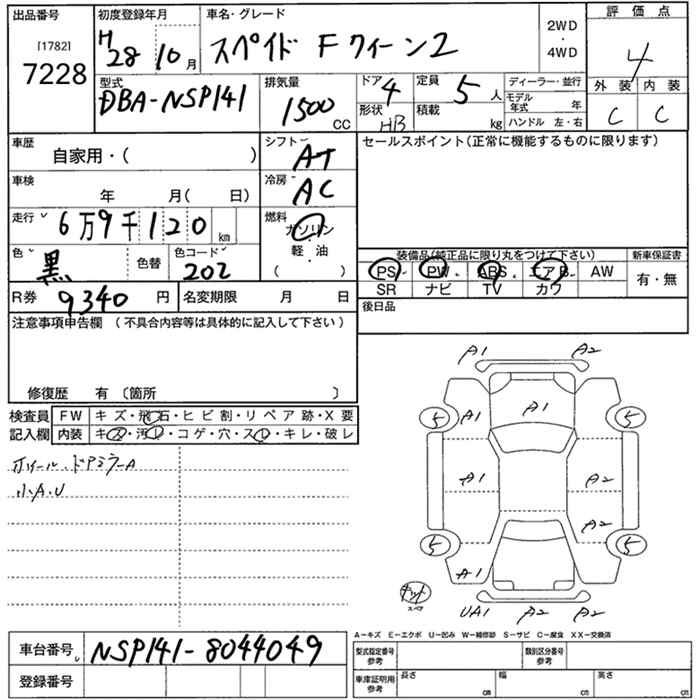 出品番号
[1782]
7228
初度登録年月
H28 10月
車名・グレード
スペイド Fクィーン2
2WD
・
4WD
評価点
4
外装 内装
C C
型式
DBA-NSP141
排気量
1500 CC
ドア 4
形状 HB
定員 5 人
積載 kg
ディーラー・並行
モデル年式 年
ハンドル 左・右
車歴
自家用・( )
車検
年 月( 日)
走行 6万9千120 km
色 黒 色替
色コード 202
シフト AT
冷房 AC
燃料
ガソリン
軽・油
( )
R券 9340 円
名変期限 月 日
セールスポイント(正常に機能するものに限ります)
装備品(純正品に限り丸をつけて下さい)
PS PW ABS エアB AW
SR ナビ TV カワ
新車保証書
有・無
後日品
注意事項申告欄 (不具合内容等は具体的に記入して下さい)
修復歴 有 〔箇所 〕
検査員記入欄
FW キズ・飛石・ヒビ割・リペア跡・X要
内装 キズ・汚レ・コゲ・穴・スレ・キレ・破レ
ホイール・ドアミラーA
小A.U
A1 A2
A1
5 A1 5
A1 A2
A2
5 5
A1
キット
スペア
UA1 A2 A2
A−キズ E−エクボ U−凹み W−補修跡 S−サビ C−腐食 XX−交換済
車台番号 NSP141-8044049
登録番号
型式指定番号 参考
類別区分番号 参考
車庫証明用 参考
長さ cm
幅 cm
高さ cm